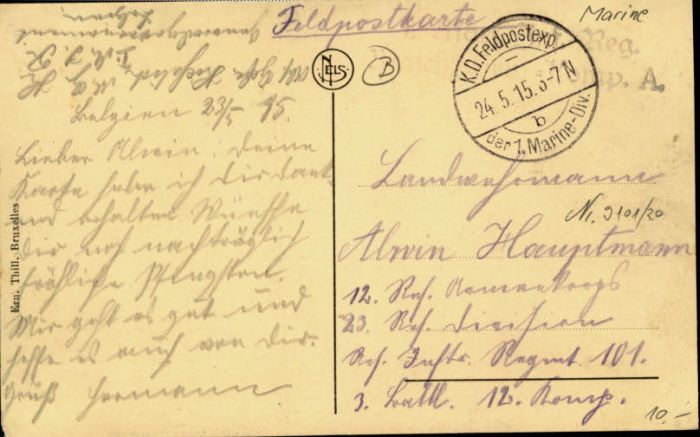 Feldpostkarte
Marine
K.D. Feldpostexp.
24.5.15. 6-7 N
b
der 1. Marine-Div.
Reg.
Komp. A.
NELS
B
Belgien 23/5 15.
Lieber Alwin, deine
Karte habe ich dir dank-
end erhalten Wünsche
dir noch nachträglich
fröhliche Pfingsten.
Mir geht es gut und
hoffe es auch von dir.
Gruß Hermann
Ern. Thill, Bruxelles
Landwehrmann
Nr. 9101/20
Alwin Hauptmann
12. Res. Armeekorps
23. Res. Division
Res. Inftr. Regmt 101.
3. Batl. 12. Komp.
10.-